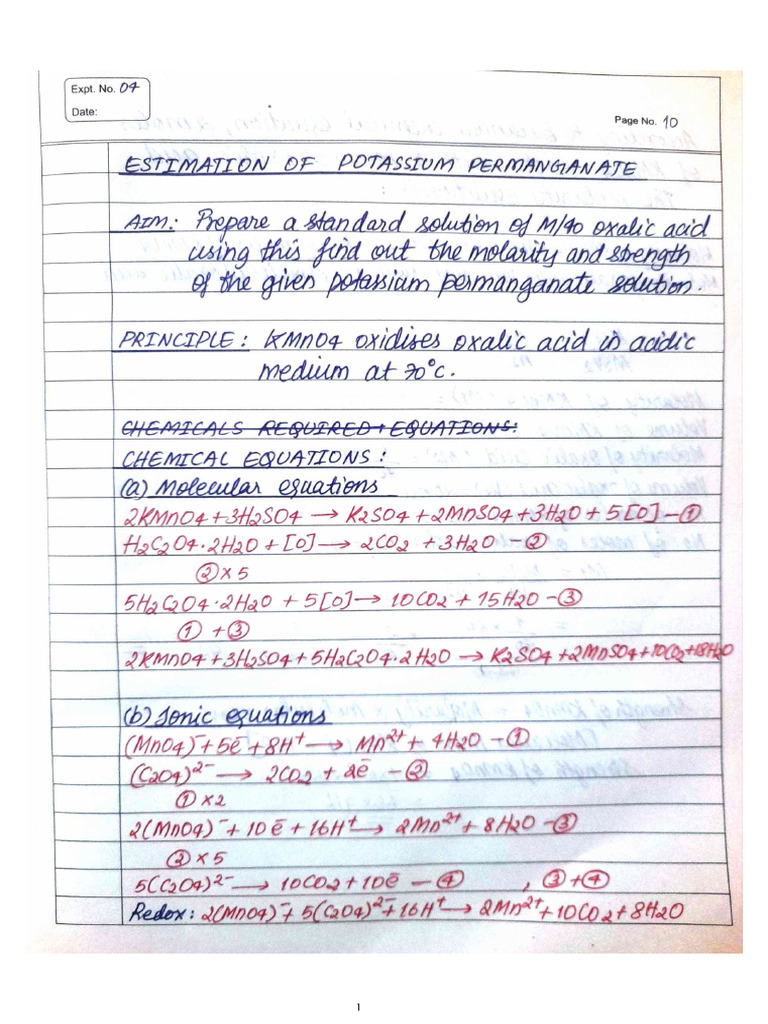 Expt. No. 04
Date:
Page No. 10
ESTIMATION OF POTASSIUM PERMANGANATE
AIM: Prepare a standard solution of M/40 oxalic acid
using this find out the molarity and strength
of the given potassium permanganate solution.
PRINCIPLE: KMnO4 oxidises oxalic acid in acidic
medium at 70°C.
CHEMICALS REQUIRED + EQUATIONS:
CHEMICAL EQUATIONS:
(a) Molecular equations
2KMnO4 + 3H2SO4 → K2SO4 + 2MnSO4 + 3H2O + 5[O] – ①
H2C2O4·2H2O + [O] → 2CO2 + 3H2O – ②
② × 5
5H2C2O4·2H2O + 5[O] → 10CO2 + 15H2O – ③
① + ③
2KMnO4 + 3H2SO4 + 5H2C2O4·2H2O → K2SO4 + 2MnSO4 + 10CO2 + 18H2O
(b) Ionic equations
(MnO4)⁻ + 5ē + 8H⁺ → Mn²⁺ + 4H2O – ①
(C2O4)²⁻ → 2CO2 + 2ē – ②
① × 2
2(MnO4)⁻ + 10ē + 16H⁺ → 2Mn²⁺ + 8H2O – ③
② × 5
5(C2O4)²⁻ → 10CO2 + 10ē – ④ , ③ + ④
Redox: 2(MnO4)⁻ + 5(C2O4)²⁻ + 16H⁺ → 2Mn²⁺ + 10CO2 + 8H2O
1